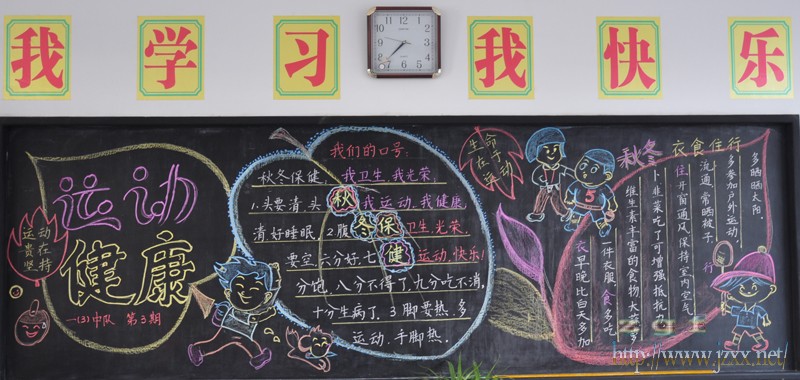 我 学 习 我 快 乐
运动
健康
运动
贵在
坚持
一(3)中队 第3期
我们的口号:
我卫生,我光荣
我运动,我健康
卫生,光荣.
运动,快乐!
秋冬保健
秋冬保健:
1.头要清,头
清,好睡眠 2腹
要空,六分好,七
分饱,八分不得了,九分吃不消,
十分生病了. 3脚要热,多
运动,手脚热.
生命
在于
运动
秋冬 衣食住行
衣 早晚比白天多加
一件衣服,食 多吃
维生素丰富的食物,大
卜 韭菜 吃 可增强抵抗力
住 开窗通风,保持室内空气
流通,常晒被子.
行 多参加户外运动,
多晒晒太阳.
http://www.jzxx.net/